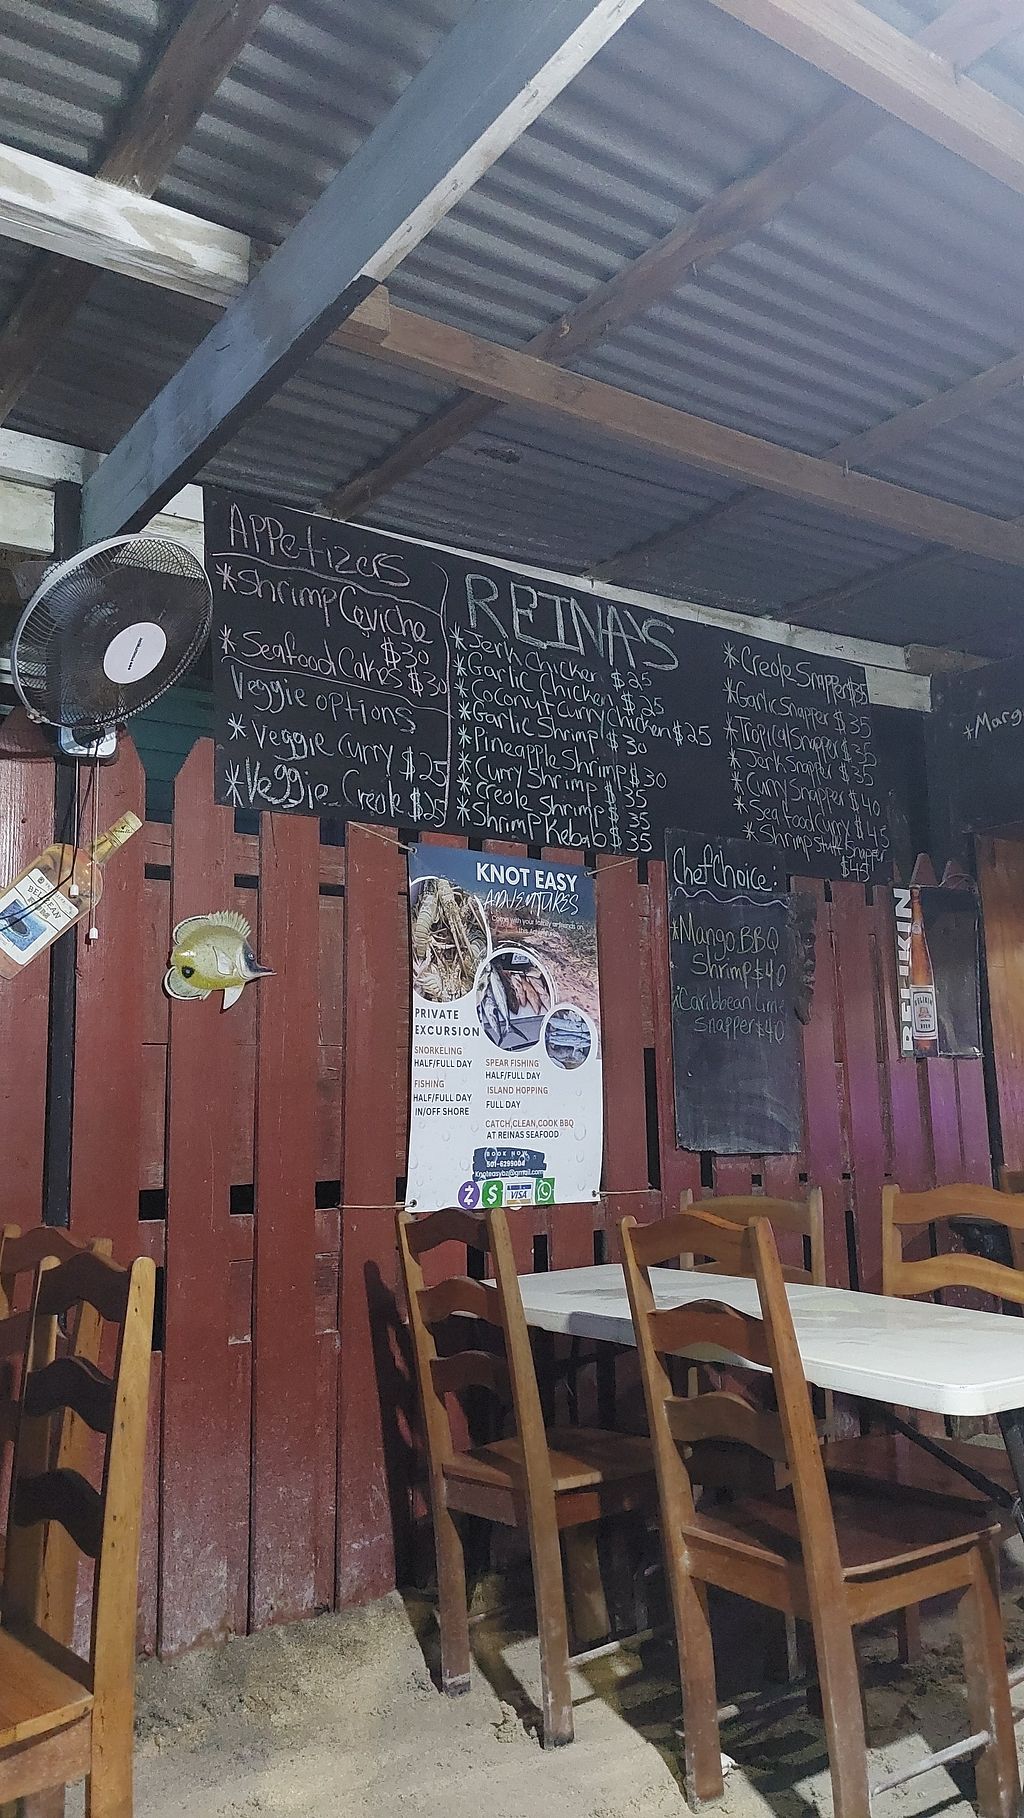 APPetizers
*Shrimp Ceviche
$30
*Seafood Cakes $30
Veggie options
* Veggie Curry $25
*Veggie Creole $25
REINA'S
*Jerk Chicken $25
*Garlic Chicken $25
*Coconut Curry Chicken $25
*Garlic Shrimp $30
*Pineapple Shrimp $30
*Curry Shrimp $35
*Creole Shrimp $35
*Shrimp Kebab $35
*Creole Snapper $35
*Garlic Snapper $35
*Tropical Snapper $35
*Jerk Snapper $35
*Curry Snapper $40
*Seafood Curry $45
*Shrimp stuff Snapper
$45
*Marg
Chef Choice:
*Mango BBQ
Shrimp $40
*Caribbean Lime
Snapper $40
KNOT EASY
ADVENTURES
Come with your family or friends on
this Adventure
PRIVATE
EXCURSION
SNORKELING
HALF/FULL DAY
FISHING
HALF/FULL DAY
IN/OFF SHORE
SPEAR FISHING
HALF/FULL DAY
ISLAND HOPPING
FULL DAY
CATCH,CLEAN,COOK BBQ
AT REINAS SEAFOOD
BOOK NOW
501-6299004
Knoteasybz@gmail.com
VISA
BELIKIN
BELIKIN
BEER